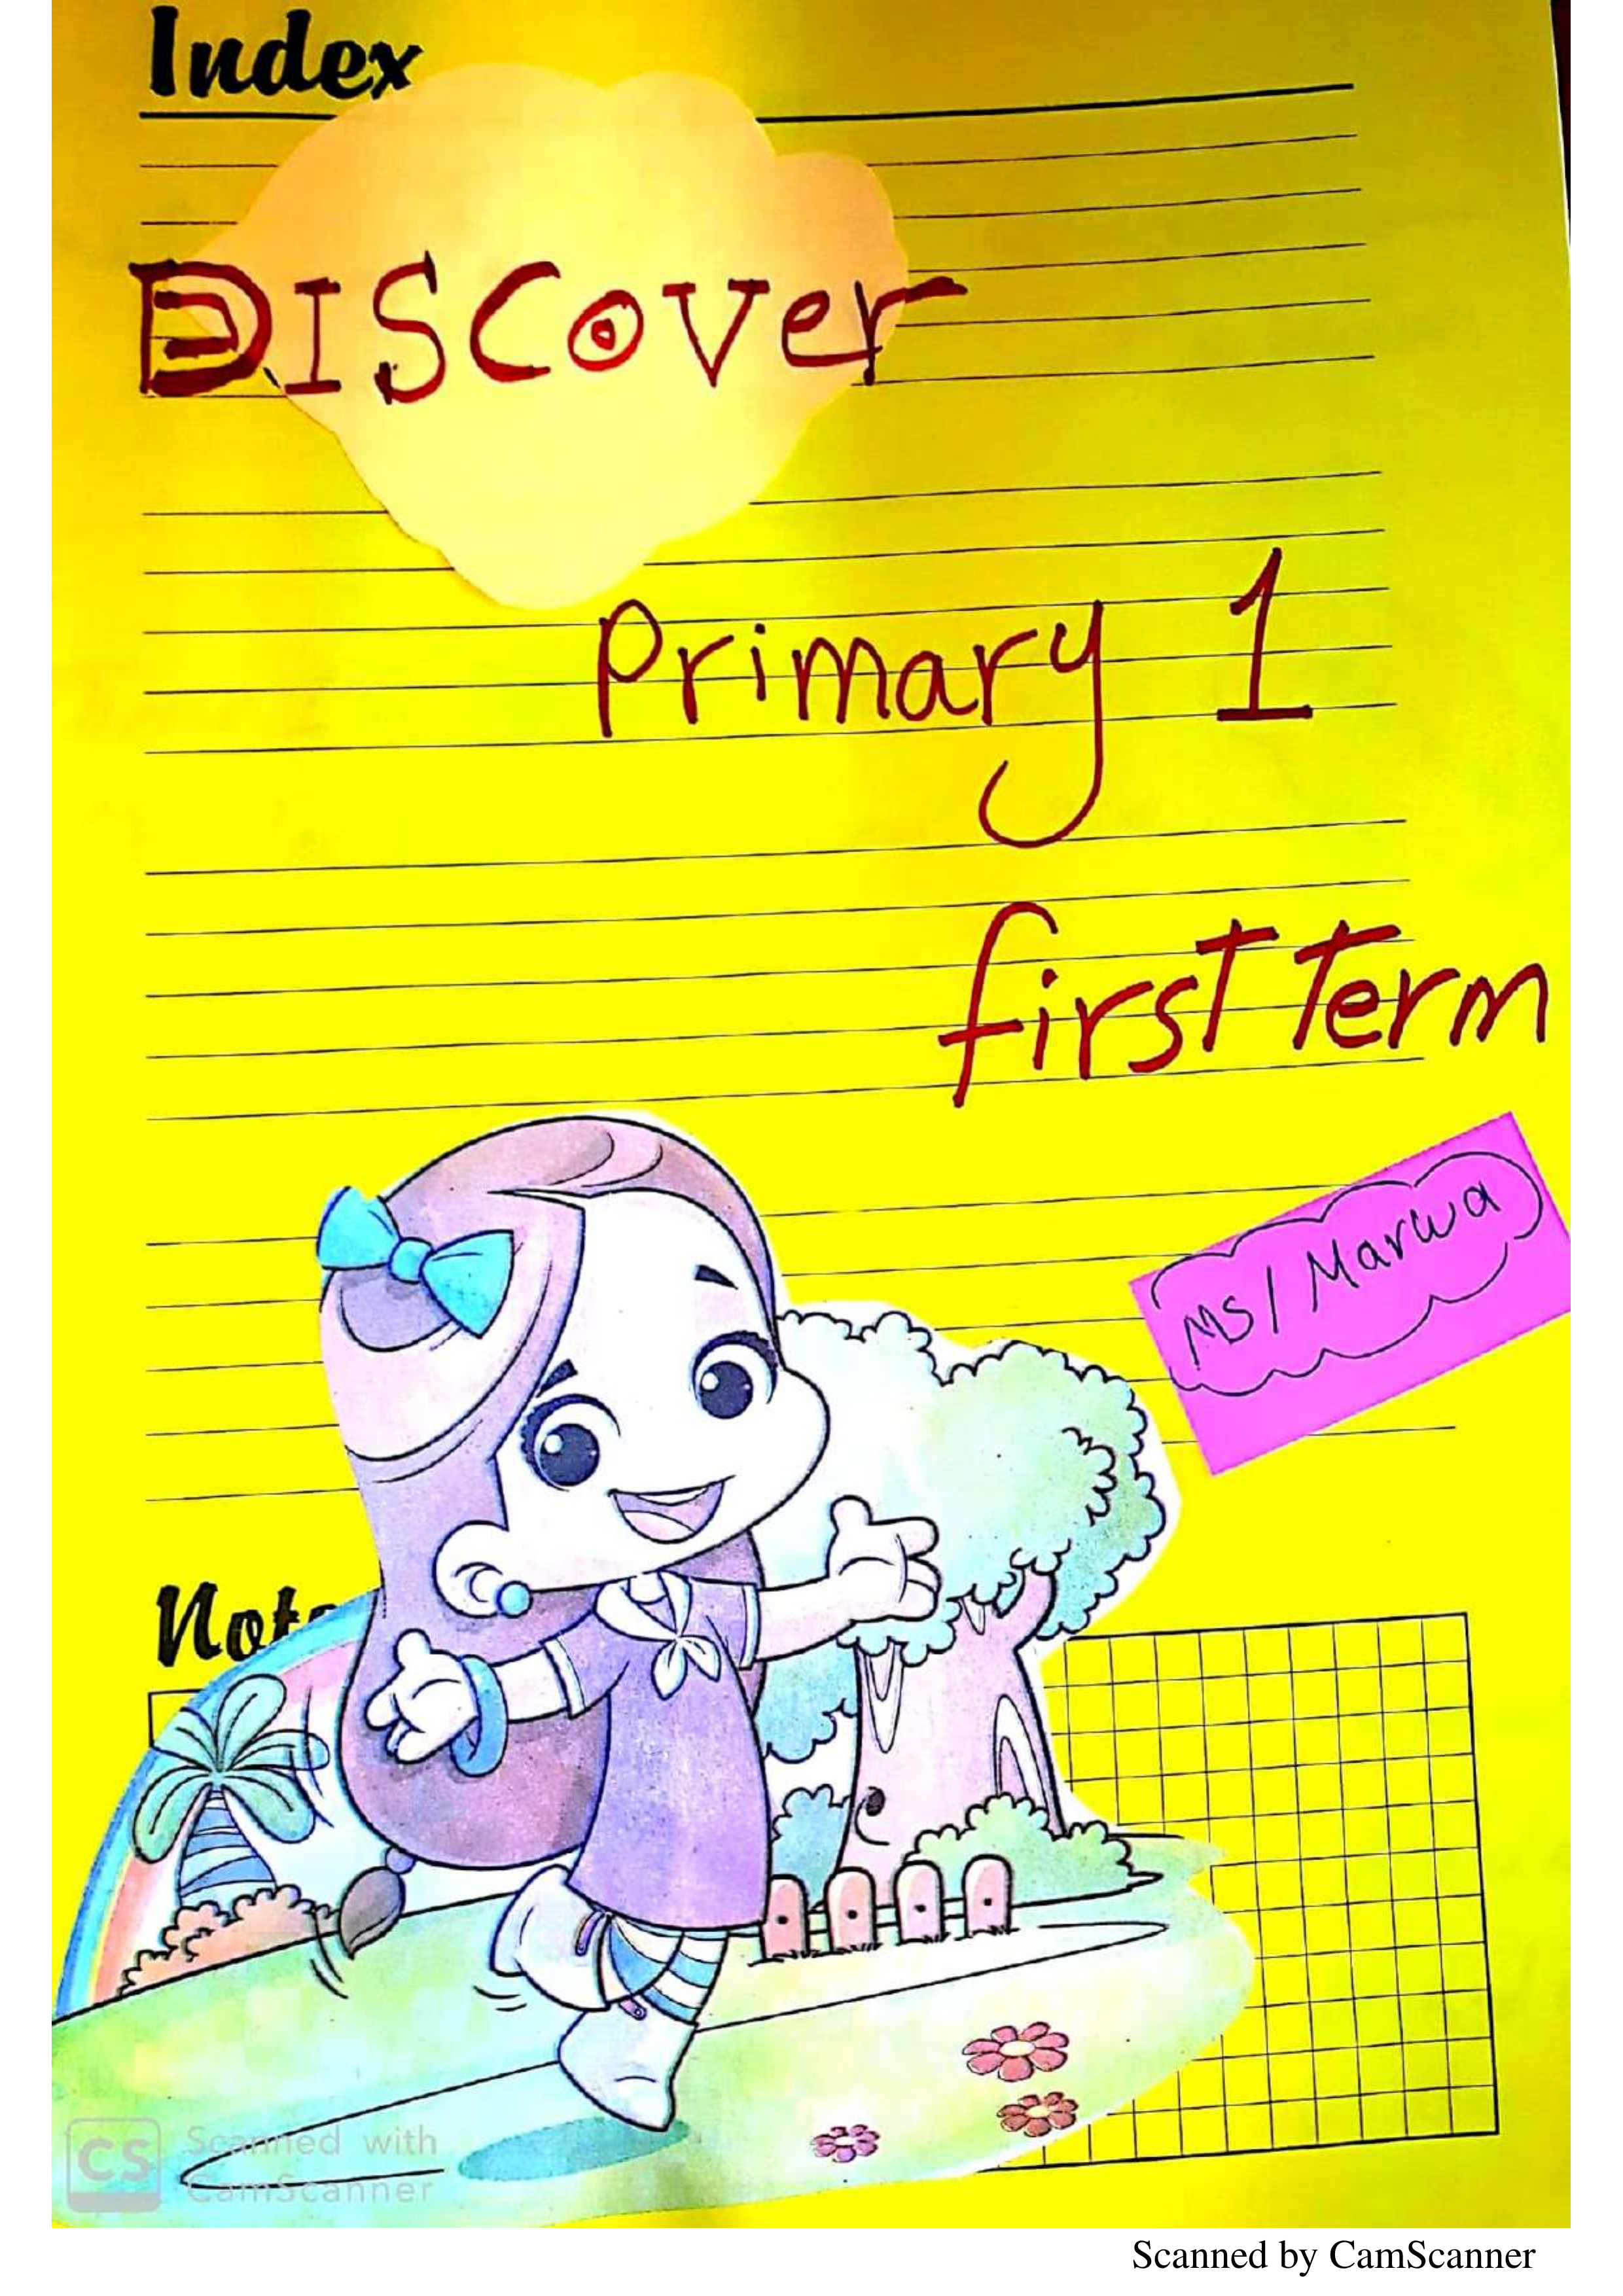 Index
DISCover
Primary 1
first Term
MS/ Marwa
Note
CS Scanned with
CamScanner
Scanned by CamScanner